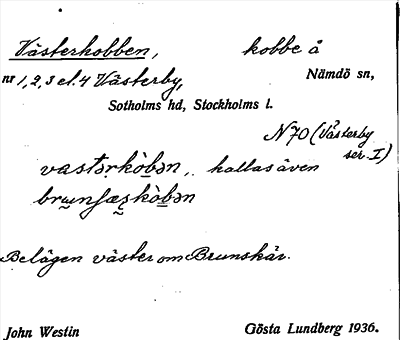 Västerkobben, kobbe å
nr 1, 2, 3 el. 4 Västerby, Nämdö sn,
Sotholms hd, Stockholms l.
N70 (Västerby
ser. I)
vastərkòbən, kallas även
brunʃæʂkòbən
Belägen väster om Brunskär.
John Westin Gösta Lundberg 1936.